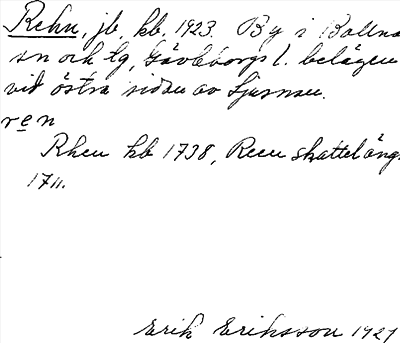 Rehn, jb, kb, 1923. By i Bollnä
sn och tg, Gävleborgs l. belägen
vid östra sidan av Ljusnan.
ren
Rhen kb 1738, Reen skattelängd
1711.
Erik Eriksson 1927